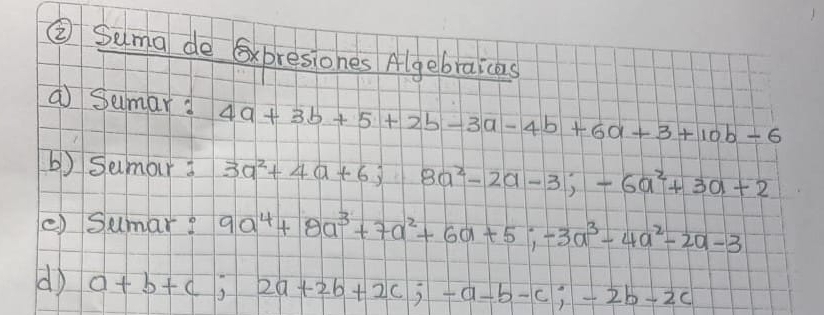 ② Suma de Expresiones Algebraicas
a) Sumar: 4a + 3b + 5 + 2b - 3a - 4b + 6a + 3 + 10b - 6
b) Sumar: 3a² + 4a + 6; 8a² - 2a - 3; - 6a² + 3a + 2
c) Sumar: 9a⁴ + 8a³ + 7a² + 6a + 5; -3a³ - 4a² - 2a - 3
d) a + b + c; 2a + 2b + 2c; -a - b - c; - 2b - 2c